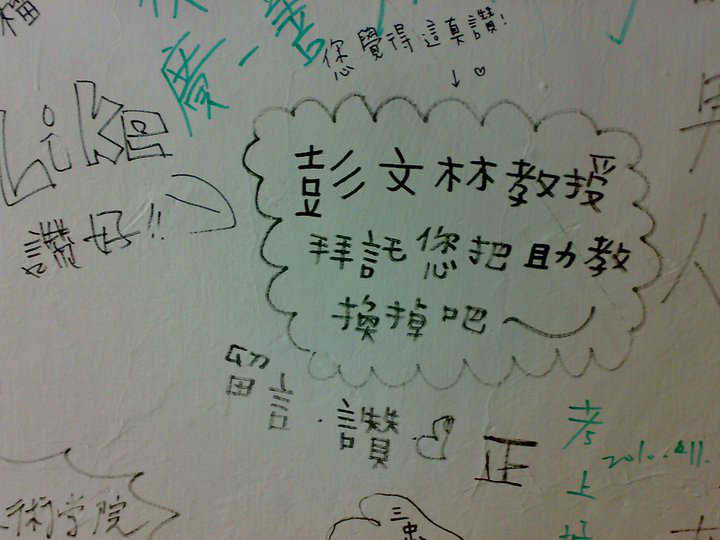 您覺得這真讚!
Like
讚好!!
彭文林教授
拜託您把助教
換掉吧～
留言・讚
正
考上
術学院
三忠